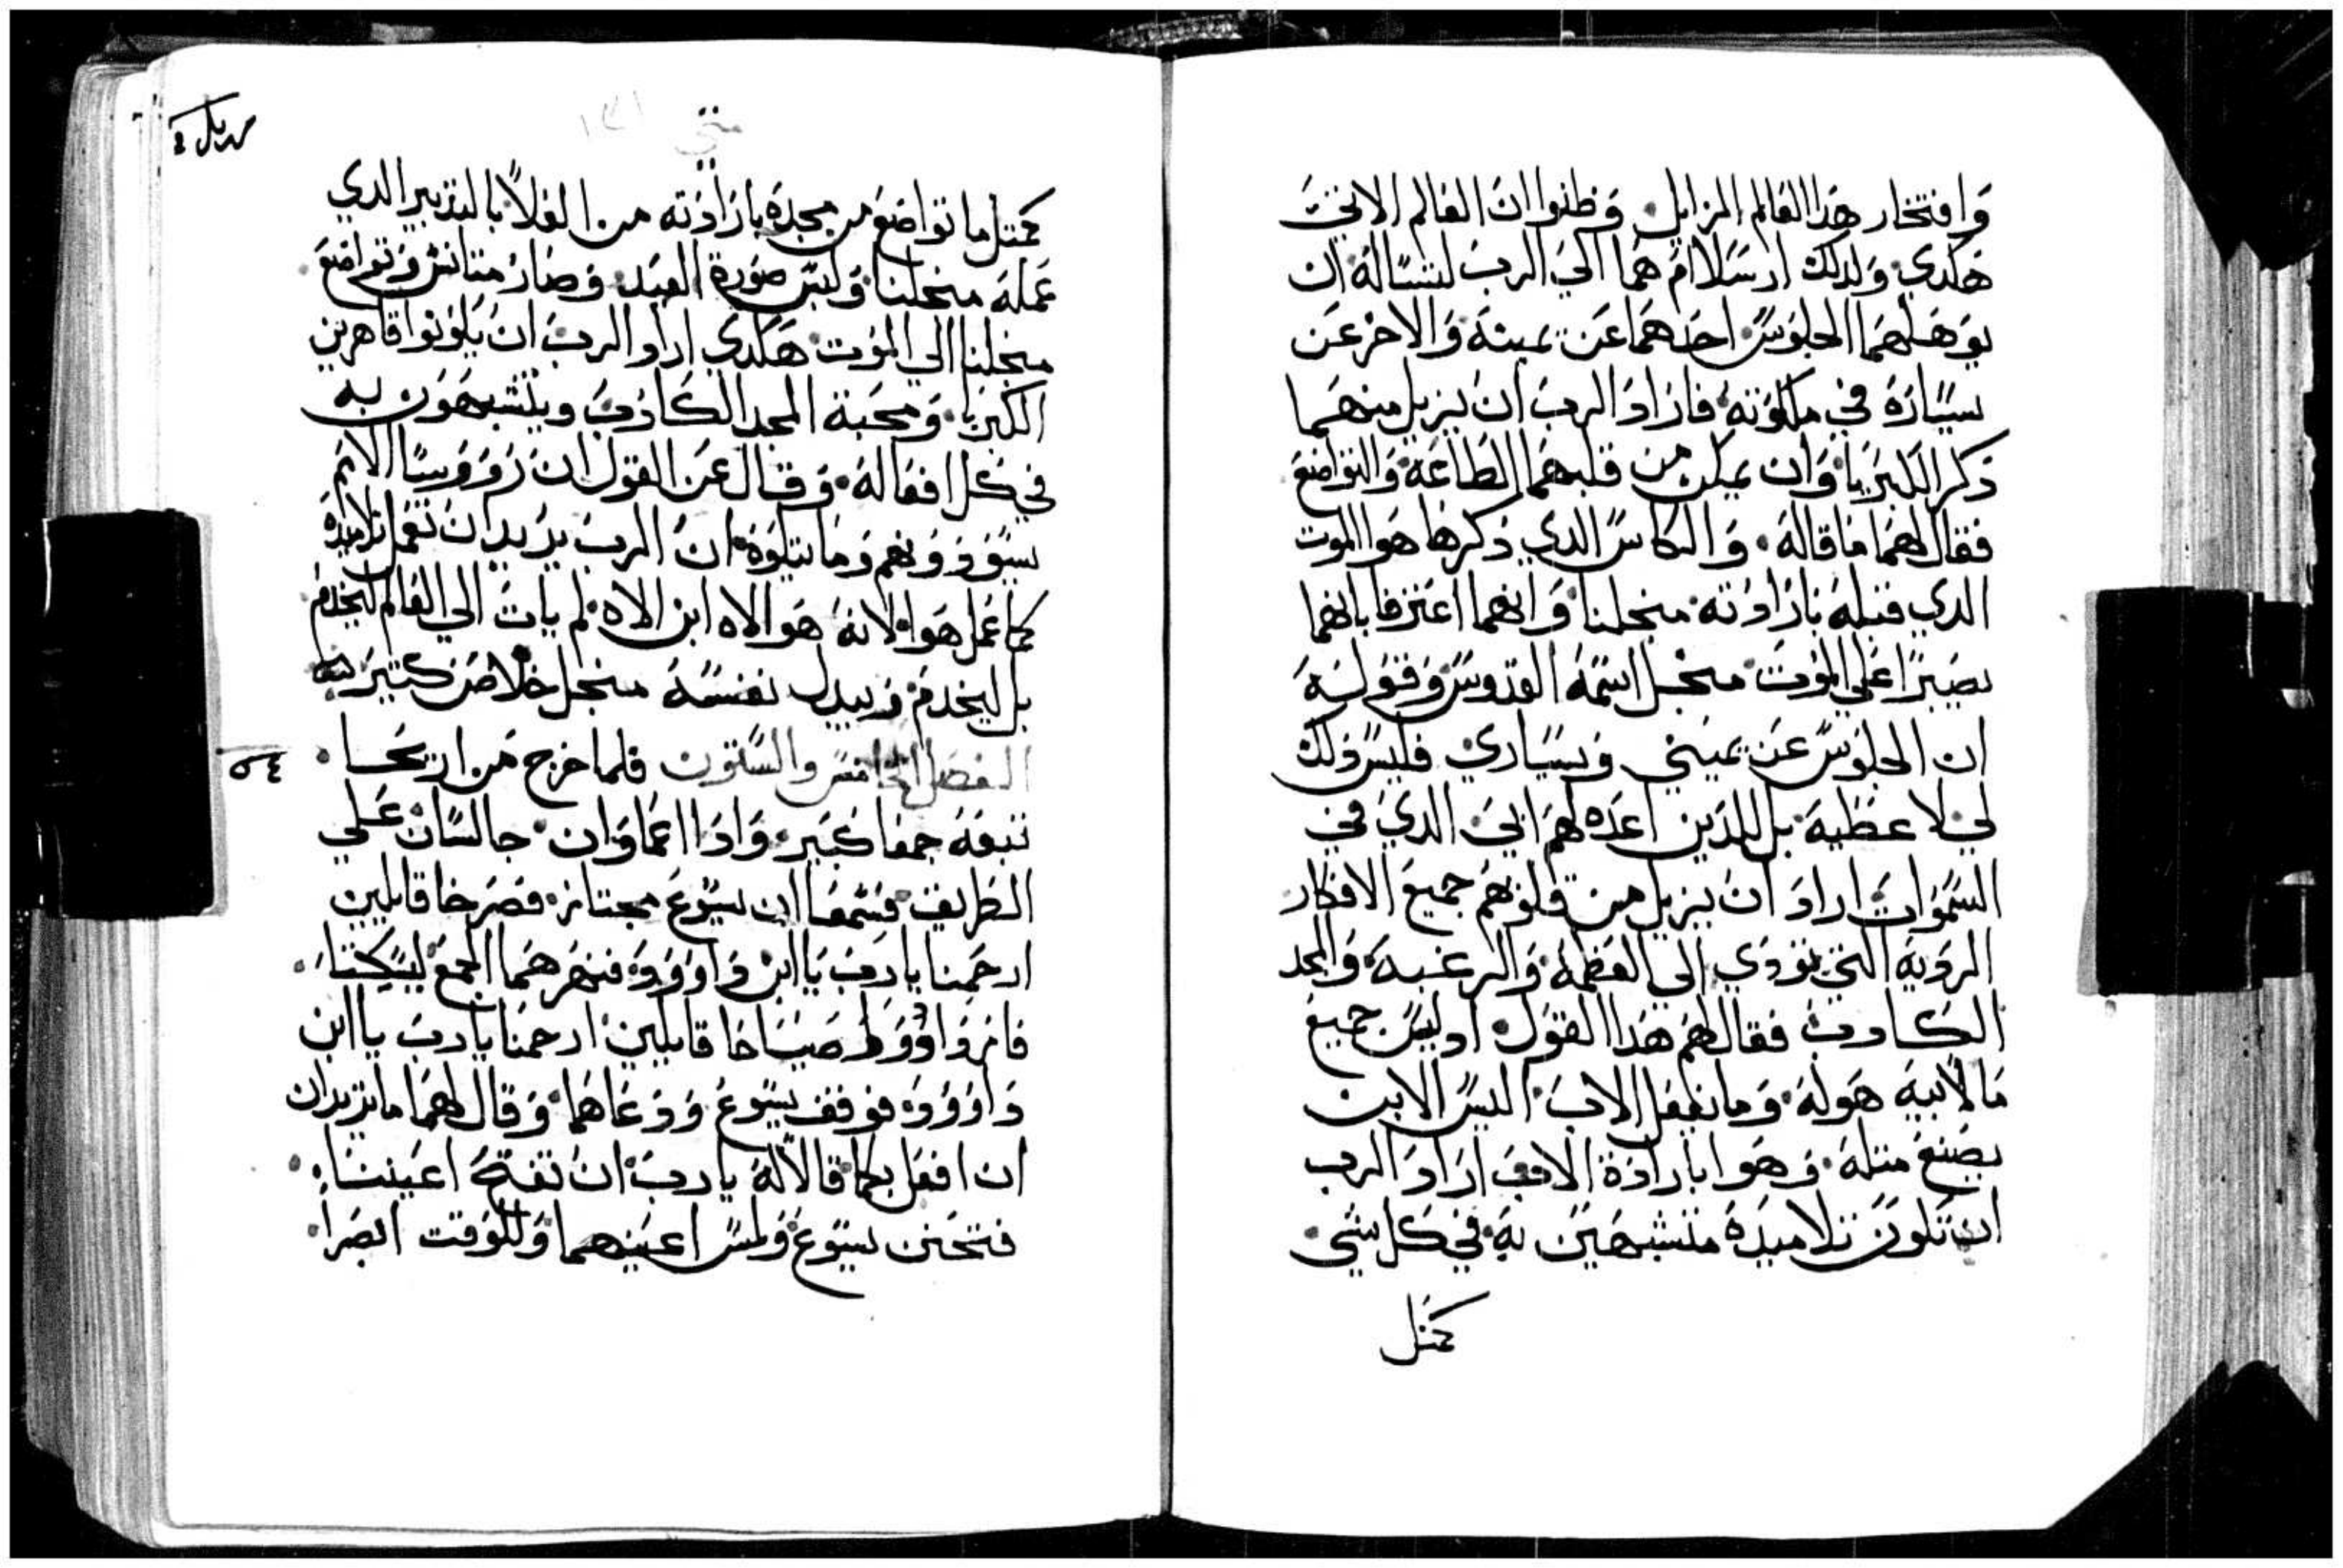 وافتخار هدا العالم الزايل. وظنوا ان العالم الاتي
هكدي. ولدلك ارسلا امهما الي الرب لتساله ان
يوهلهما الجلوس. احدهما عن يمينه والاخر عن
يساره في ملكوته. فاراد الرب ان يزيل منهما
دكر الكبريا. وان يمكن من قلبهما الطاعة والتواضع
فقال لهما ما قاله. والكاس الدي دكرها هو الموت
الدي قبله بارادته منجلنا. وانهما اعترفا بانهما
يصبرا علي الموت منجل اسمه القدوس وقوله
ان الجلوس عن يميني ويساري. فليس دلك
لي لاعطيه. بل للدين اعده لهم ابي الدي في
السموات اراد ان يزيل من قلوبهم جميع الافكار
الرديه التي تودي الي العظمه والرغبه والمجد
الكادب فقال لهم هدا القول. اوليس جميع
ما لابيه هو له. وما يفعل الاب. اليس الابن
يصنع متله. وهوا بارادة الاب اراد الرب
ان تكون تلاميده متشبهين به. في كل شي
كمتل
متي
كمتل ما تواضع من مجده بارادته من العلا بالتدبير الدي
عمله منجلنا. ولبس صورة العبد. وصار متانس وتواضع
منجلنا الي الموت. هكدي اراد الرب ان يكونوا قاهرين
الكبريا. ومحبة المجد الكادب ويتشبهون به
في كل افعاله. وقال عن القول ان روورسا الامم
يسودونهم وما يتلوه. ان الرب يريد ان تعمل تلاميده
كما عمل هوا. لانه هو الاه ابن الاه. لم يات الي العالم ليخدم
بل ليخدم. ويبدل نفسه منجل خلاص كتيرين
الفصل الخامس والستون فلما خرج من اريحا.
تبعه جمعا كبير. وادا اعماوان. جالسان علي
الطريق. فسمعا ان يسوع مجتاز. فصرخا قايلين
ارحمنا يا رب يا ابن داوود. فنهرهما الجمع ليسكتا.
فازدادوا صياحا قايلين ارحمنا يا رب يا ابن
داوود. فوقف يسوع. ودعاهما. وقال لهما ما تريدان
ان افعل بكما قالا له يا رب. ان تفتح اعيننا.
فتحنن يسوع ولمس اعينهما وللوقت ابصرا.
٥٤